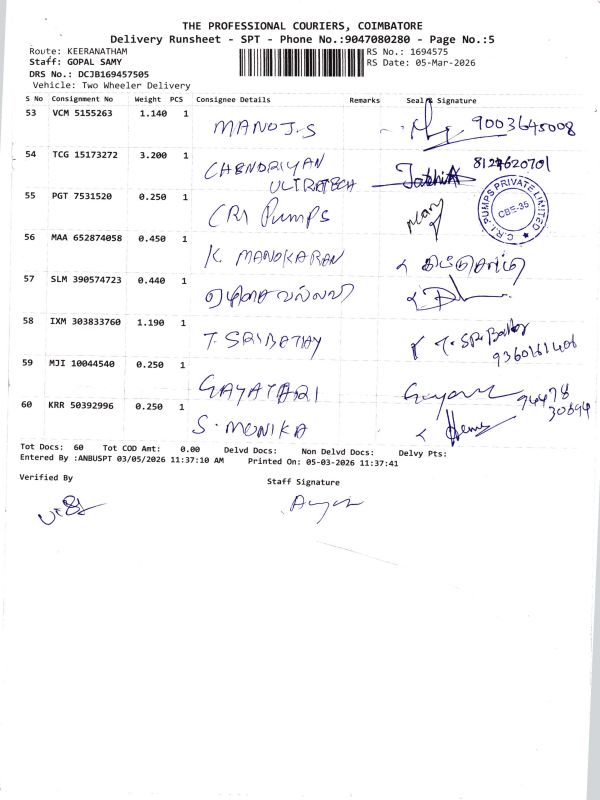 THE PROFESSIONAL COURIERS, COIMBATORE
Delivery Runsheet - SPT - Phone No.:9047080280 - Page No.:5
Route: KEERANATHAM RS No.: 1694575
Staff: GOPAL SAMY RS Date: 05-Mar-2026
DRS No.: DCJB169457505
Vehicle: Two Wheeler Delivery
S No Consignment No Weight PCS Consignee Details Remarks Seal & Signature
53 VCM 5155263 1.140 1 MANOJ.S 9003645008
54 TCG 15173272 3.200 1 CHENDRIYAN 8124620701
ULTRATECH
55 PGT 7531520 0.250 1 CRI PUMPS
C.R.I. PUMPS PRIVATE LIMITED
CBE-35
56 MAA 652874058 0.450 1 K. MANOKARAN
57 SLM 390574723 0.440 1
58 IXM 303833760 1.190 1 T. SRI
9360161406
59 MJI 10044540 0.250 1 GAYATARI 94478
30694
60 KRR 50392996 0.250 1 S. MONIKA
Tot Docs: 60 Tot COD Amt: 0.00 Delvd Docs: Non Delvd Docs: Delvy Pts:
Entered By :ANBUSPT 03/05/2026 11:37:10 AM Printed On: 05-03-2026 11:37:41
Verified By
Staff Signature